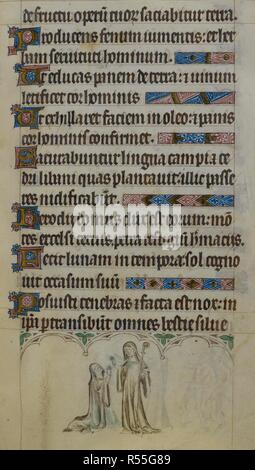 de fructu operũ tuoꝝ saciabitur terra.
Producens fenum iumentis: et her
bam seruituti hominum.
Ut educas panem de terra: ⁊ uinum
letificet cor hominis
Ut exhillaret faciem in oleo: ⁊ panis
cor hominis confirmet.
Saturabuntur lingna campi ⁊ ce
dri libani quas plantauit: illic passe
res nidificabũt.
Herodii domus dux est eorum: mõ
tes excelsi ceruis, petra refugiũ
Fecit lunam in tempora: sol cogno
uit occasum suũ
Posuisti tenebras ⁊ facta est nox: in
ip̃a ꝑtransibũt omnes bestie silue
alamy
alamy
Image ID: R55G89
www.alamy.com